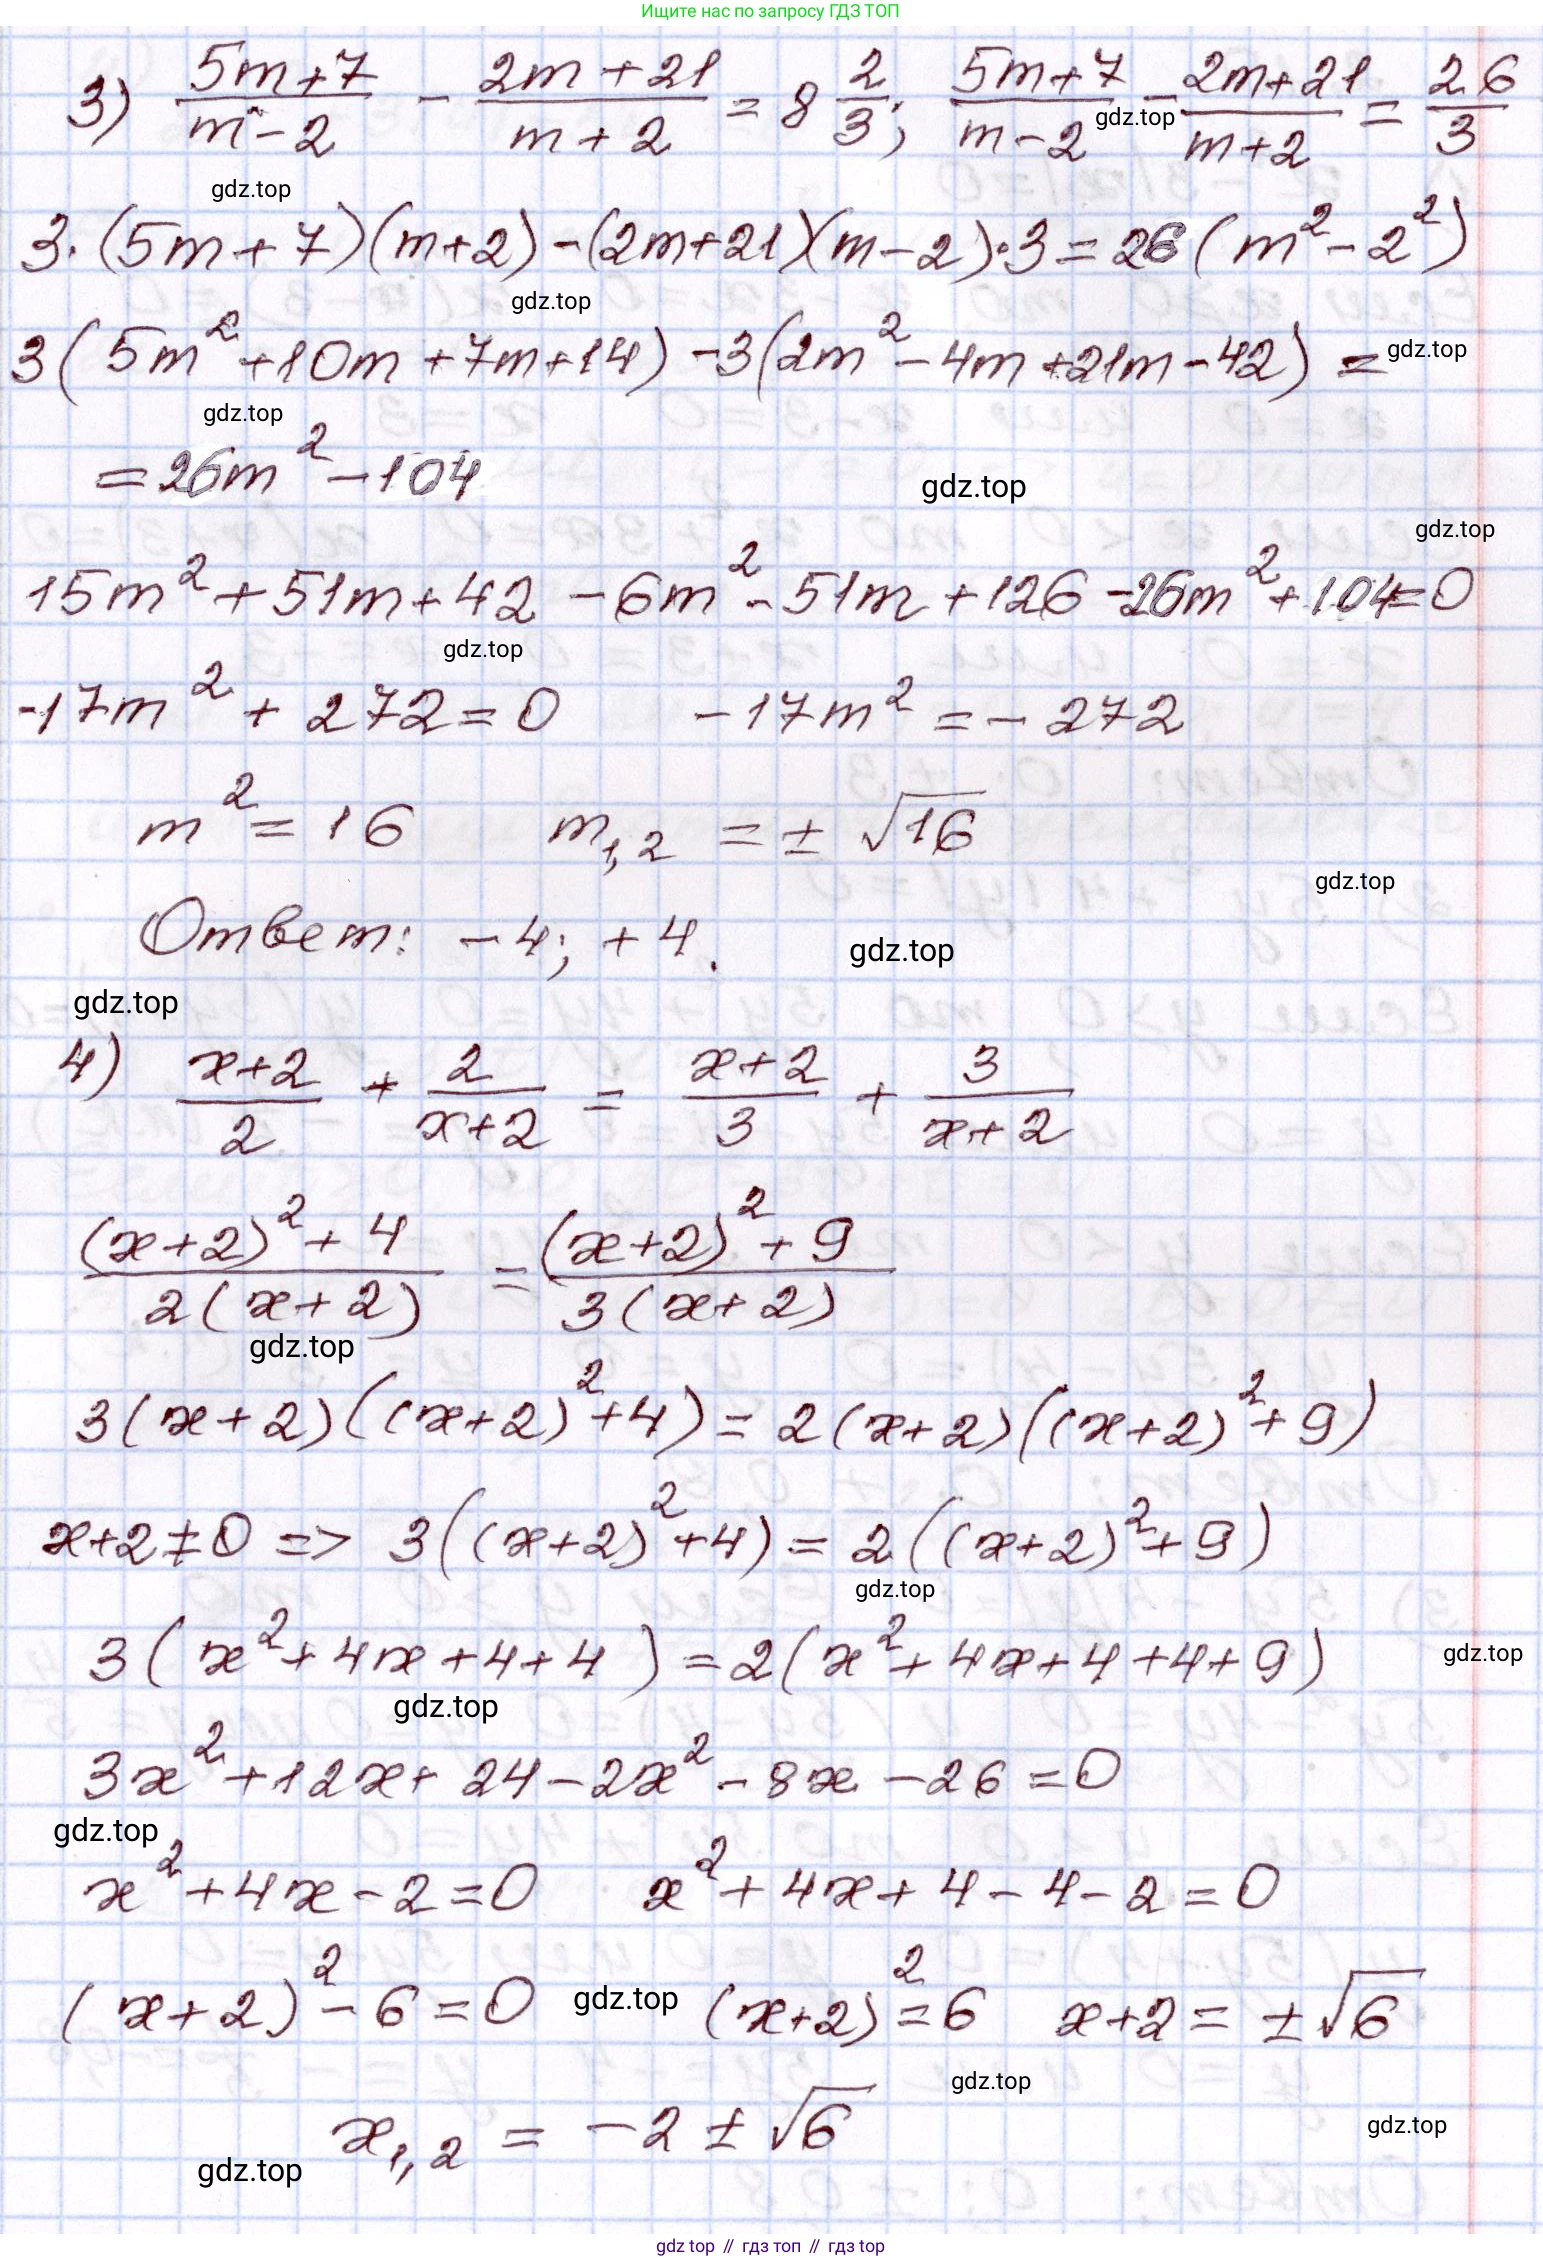 Ищите нас по запросу ГДЗ ТОП
3) (5m+7)/(m-2) - (2m+21)/(m+2) = 8 2/3; (5m+7)/(m-2) - (2m+21)/(m+2) = 26/3
gdz.top
gdz.top
3·(5m+7)(m+2)-(2m+21)(m-2)·3=26(m²-2²)
gdz.top
3(5m²+10m+7m+14)-3(2m²-4m+21m-42)=
gdz.top
gdz.top
=26m²-104
gdz.top
gdz.top
15m²+51m+42-6m²-51m+126-26m²+104=0
gdz.top
-17m²+272=0 -17m²=-272
m²=16 m₁,₂=±√16
gdz.top
Ответ: -4; +4.
gdz.top
gdz.top
4) (x+2)/2 + 2/(x+2) = (x+2)/3 + 3/(x+2)
((x+2)²+4)/(2(x+2)) = ((x+2)²+9)/(3(x+2))
gdz.top
3(x+2)((x+2)²+4)=2(x+2)((x+2)²+9)
x+2≠0 => 3((x+2)²+4)=2((x+2)²+9)
gdz.top
3(x²+4x+4+4)=2(x²+4x+4+4+9)
gdz.top
gdz.top
3x²+12x+24-2x²-8x-26=0
gdz.top
x²+4x-2=0 x²+4x+4-4-2=0
(x+2)²-6=0 gdz.top (x+2)²=6 x+2=±√6
gdz.top
x₁,₂=-2±√6
gdz.top
gdz.top
gdz top // гдз топ // гдз top